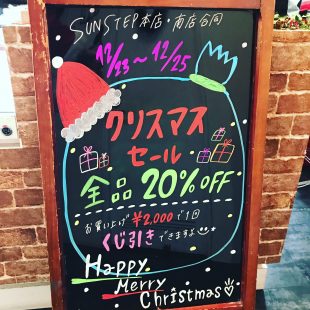 SUNSTEP本店・南店合同
12/23~12/25
クリスマス
セール
全品 20%OFF
お買い上げ¥2,000で1回
くじ引きできますよ
Happy
Merry
Christmas